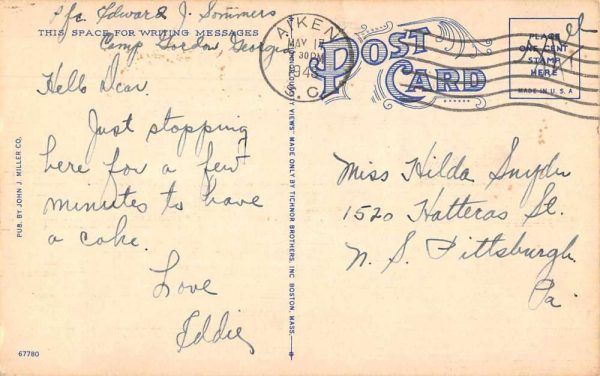 Pfc. Edward J. Sommers
THIS SPACE FOR WRITING MESSAGES
Camp Gordon, Georgia
Hello Dear.
Just stopping
here for a few
minutes to have
a coke.
Love
Eddie
PUB. BY JOHN J. MILLER CO.
67780
VIEWS." MADE ONLY BY TICHNOR BROTHERS, INC. BOSTON, MASS.
AIKEN
MAY 17
30
194
S.C.
POST
CARD
PLACE
ONE CENT
STAMP
HERE
MADE IN U.S.A
Miss Hilda Snyder
1520 Hatteras St.
N. S. Pittsburgh
Pa.